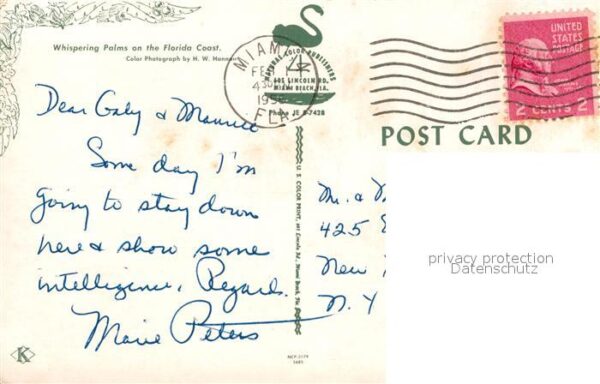 Whispering Palms on the Florida Coast.
Color Photograph by H. W. Hannau
NATURAL COLOR PUBLISHERS
605 LINCOLN RD.
MIAMI BEACH, FLA.
Phone JE 8-7428
MIAMI
FEB
4
FLA
UNITED STATES POSTAGE
2 CENTS 2
POST CARD
Dear Gaby & Maurice
Some day I'm
going to stay down
here & show some
intelligence, Regards.
Marie Peters
M. &
425 E
New
N. Y
U. S. COLOR PRINT, 605 Lincoln Rd., Miami Beach, Fla.
privacy protection
Datenschutz
K